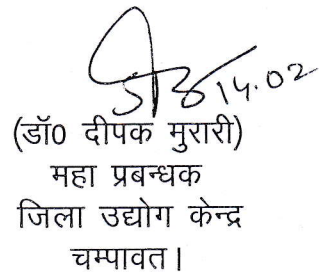 14.02
(डॉ0 दीपक मुरारी)
महा प्रबन्धक
जिला उद्योग केन्द्र
चम्पावत।